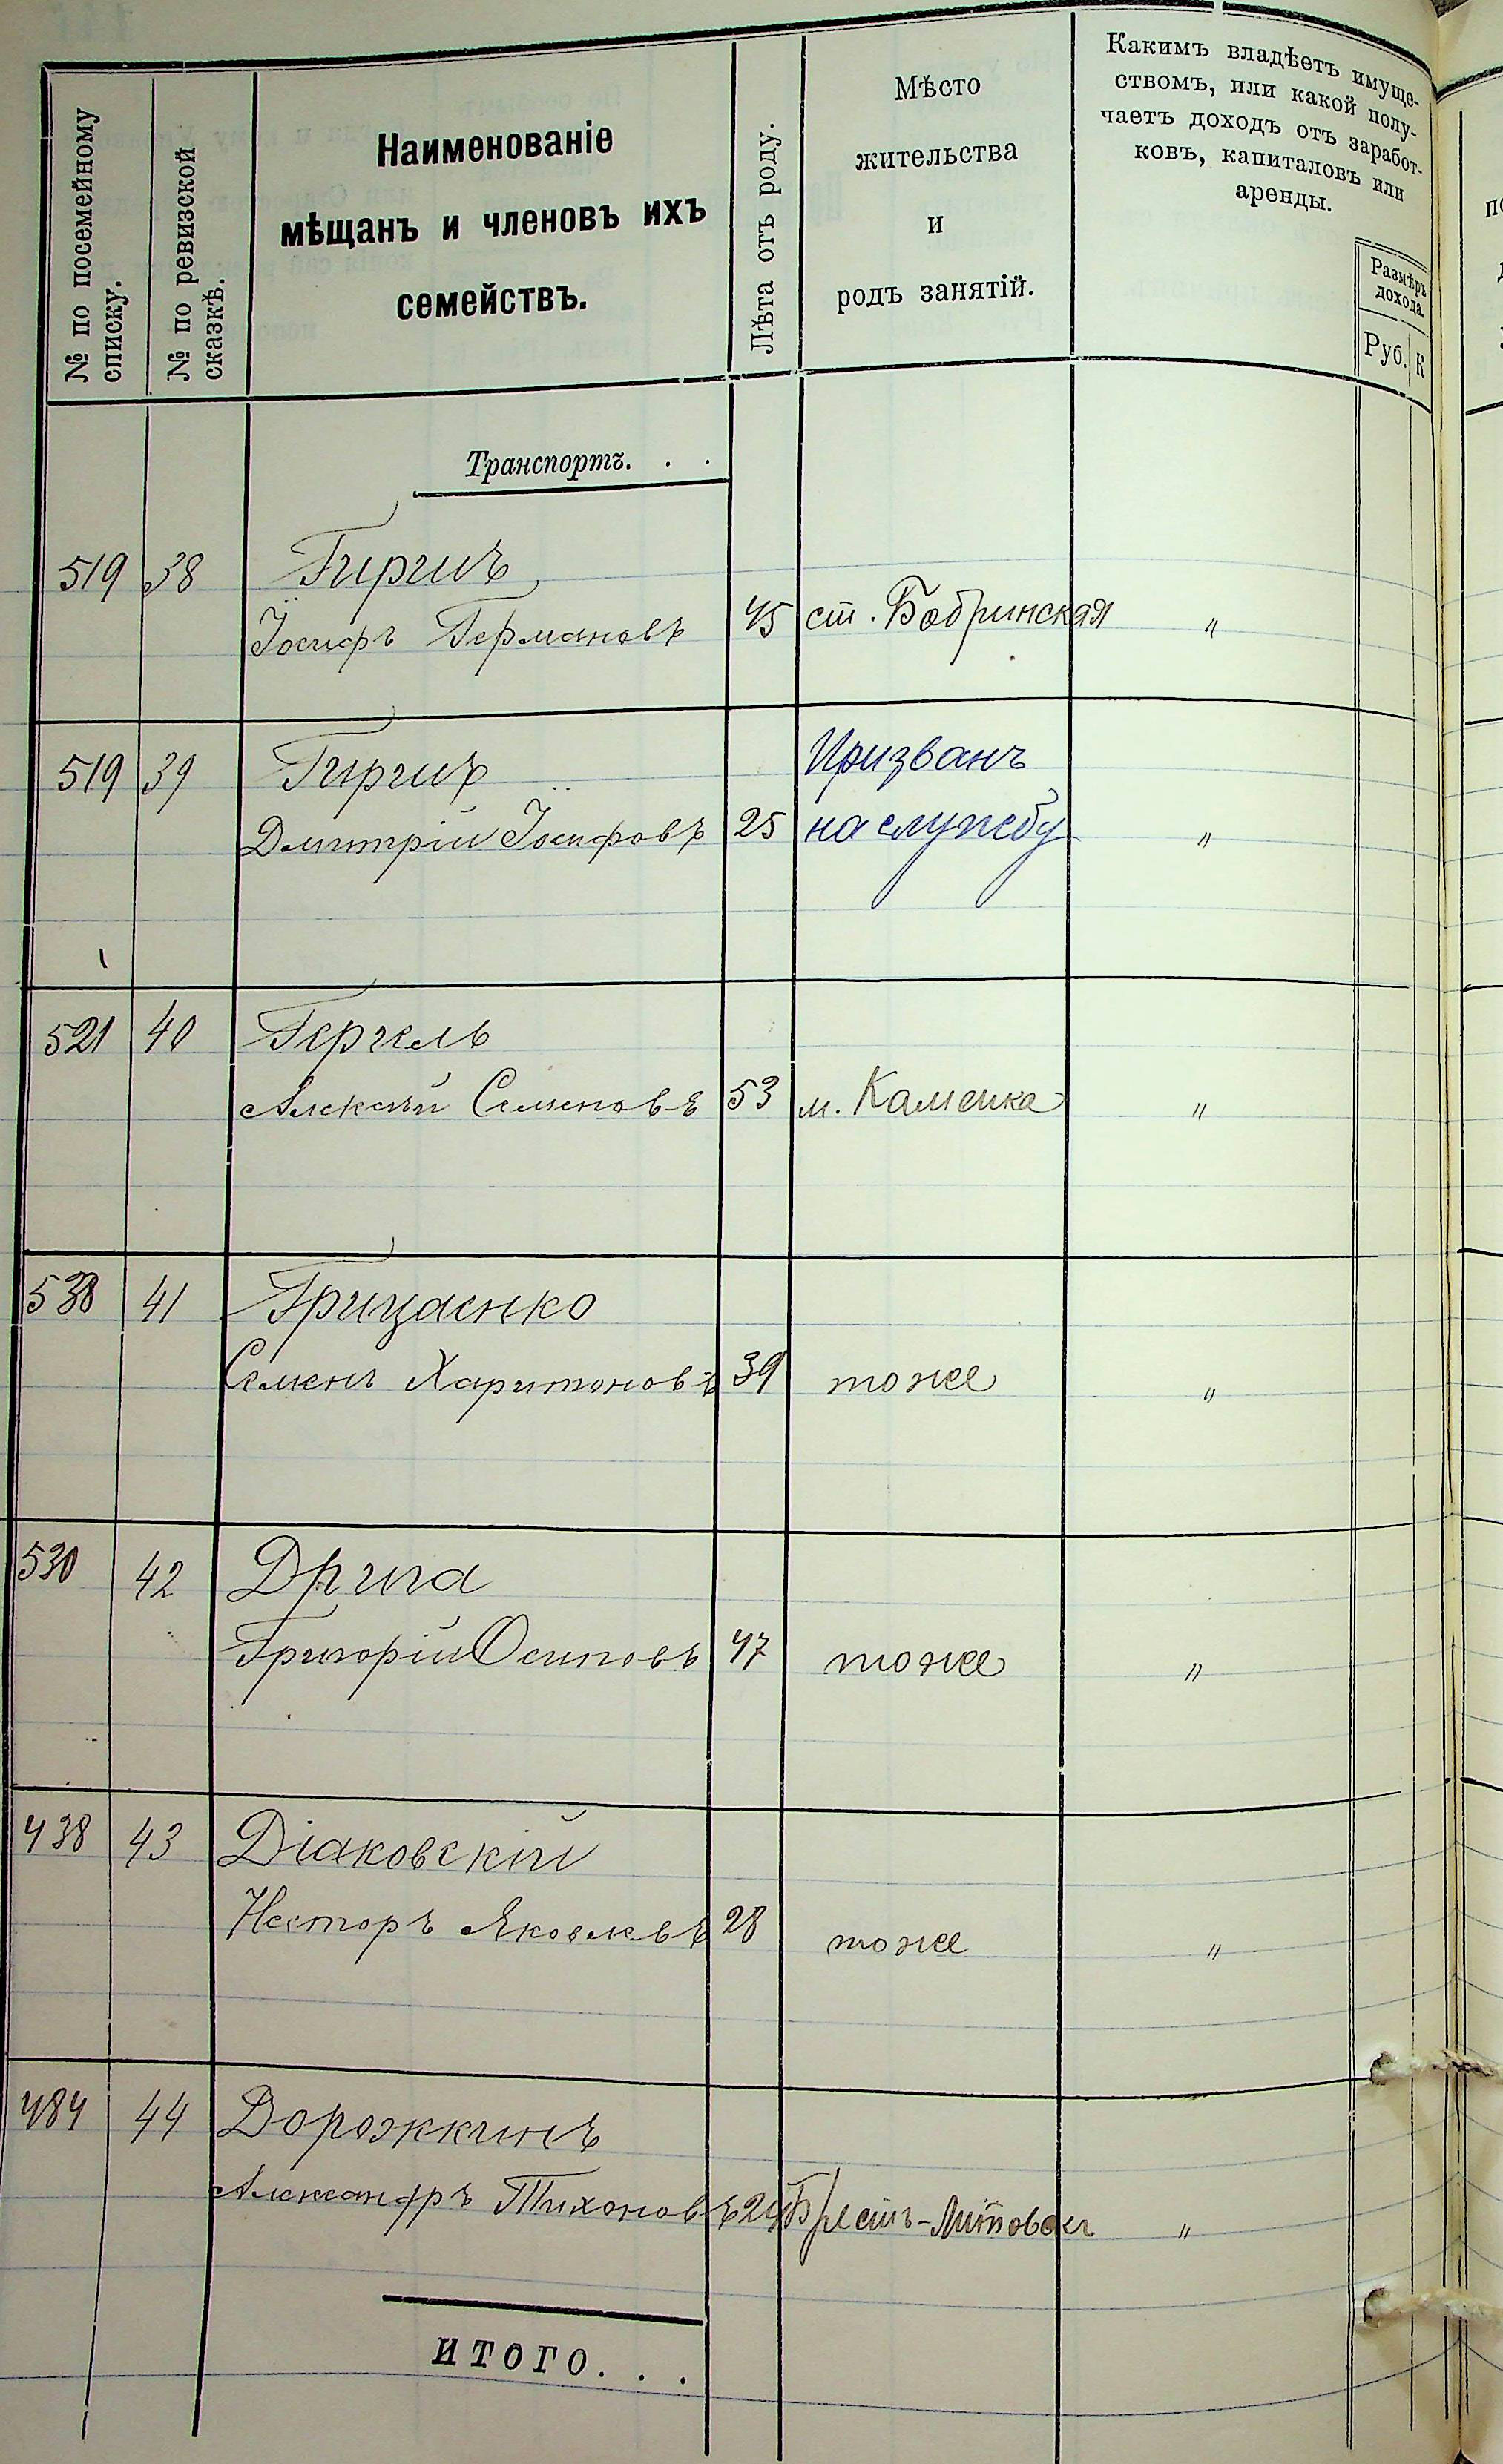 № по посемейному
списку.
№ по ревизской
сказкѣ.
Наименованіе
мѣщанъ и членовъ ихъ
семействъ.
Лѣта отъ роду.
Мѣсто
жительства
и
родъ занятій.
Какимъ владѣетъ имуще-
ствомъ, или какой полу-
чаетъ доходъ отъ заработ-
ковъ, капиталовъ или
аренды.
Размѣръ
дохода.
Руб. К
Транспортъ. . .
519 38 Гиргиъ
Іосифъ Германовъ 45 ст. Бобринская "
519 39 Гиргиъ Призванъ
Дмитрій Іосифовъ 25 на службу "
521 40 Гергель
Алексѣй Семеновъ 53 м. Каменка "
538 41 Грицаенко
Семенъ Харитоновъ 39 тоже "
530 42 Дрига
Григорій Осиповъ 47 тоже "
438 43 Діаковскій
Несторъ Яковлевъ 28 тоже "
484 44 Дорожкинъ
Александръ Тихоновъ 24 Брестъ-Литовскъ "
ИТОГО. . .